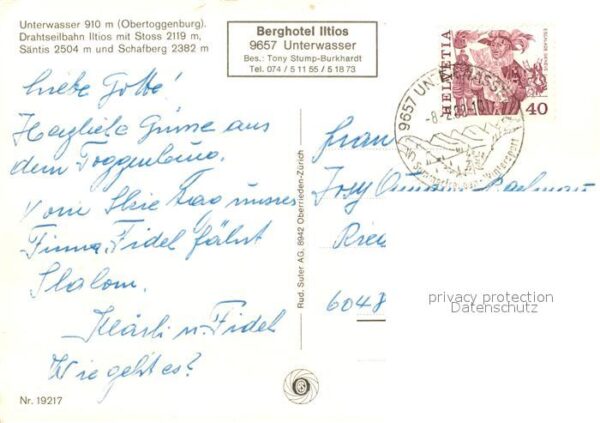 Unterwasser 910 m (Obertoggenburg).
Drahtseilbahn Iltios mit Stoss 2119 m,
Säntis 2504 m und Schafberg 2382 m
Berghotel Iltios
9657 Unterwasser
Bes.: Tony Stump-Burkhardt
Tel. 074 / 5 11 55 / 5 18 73
HELVETIA
40
9657 UNTERWASSER
Liebe Gotte!
Herzliche Grüsse aus
dem Toggenburg.
Vom Skie Tag unserer
Firma. Fidel fährt
Slalom.
Kläsli u. Fidel
Wie geht es?
Rud. Suter AG, 8942 Oberrieden-Zürich
Frau
Josy
6048
privacy protection
Datenschutz
Nr. 19217